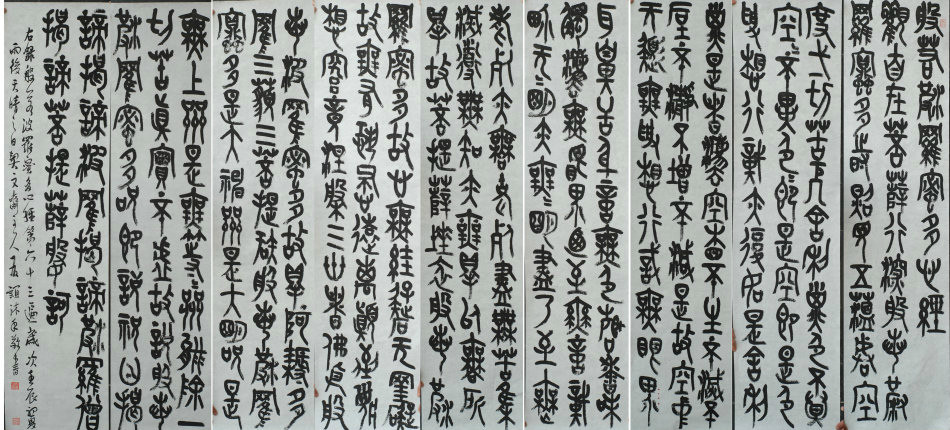 般若波羅蜜多心經
觀自在菩薩行深般若波
羅蜜多時照見五蘊皆空
度一切苦厄舍利子色不異
空空不異色色即是空空即是色
受想行識亦復如是舍利
子是諸法空相不生不滅不
垢不淨不增不減是故空中
无色無受想行識無眼耳
鼻舌身意無色聲香味
觸法無眼界乃至無意識
界无无明亦無无明盡乃至無
老死亦无老死盡無苦集
滅道無知亦無得以無所
得故菩提薩埵依般若波
羅蜜多故心無罣礙无罣礙
故無有恐怖遠離顛倒夢
想究竟涅槃三世諸佛依般
若波羅蜜多故得阿耨多
羅三藐三菩提故知般若波羅
蜜多是大神咒是大明咒是
無上咒是無等等咒能除一
切苦真實不虛故說般若
波羅蜜多咒即說咒曰揭
諦揭諦波羅揭諦波羅僧
揭諦菩提薩婆訶
右錄般若波羅蜜多心經第六十三遍歲次壬辰夏
雨後天清之日 文齋主人